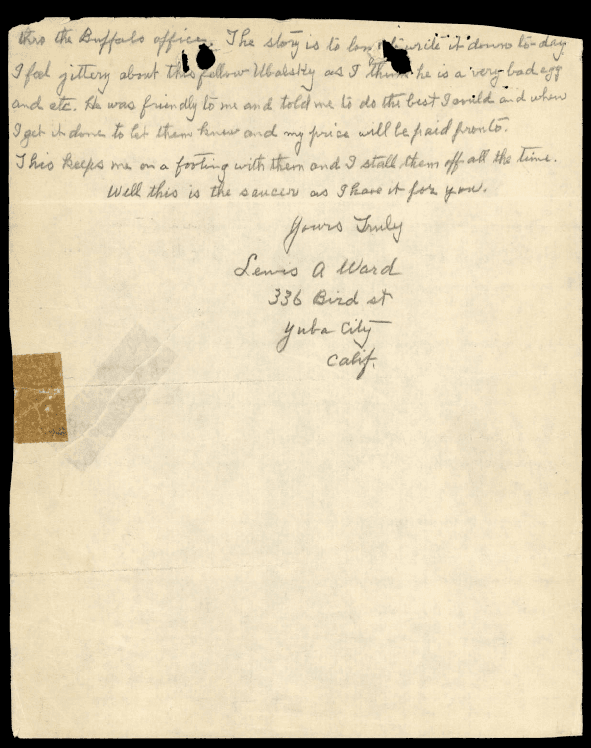 thro the Buffalo office. The story is to long to write it down to-day
I feel jittery about this fellow as I think he is a very bad egg
and etc. He was friendly to me and told me to do the best I could and when
I get it done to let them know and my price will be paid pronto.
This keeps me on a footing with them and I stall them off all the time.
Well this is the saucer as I have it for you.
Yours Truly
Lewis A Ward
336 Bird st
Yuba City
Calif.